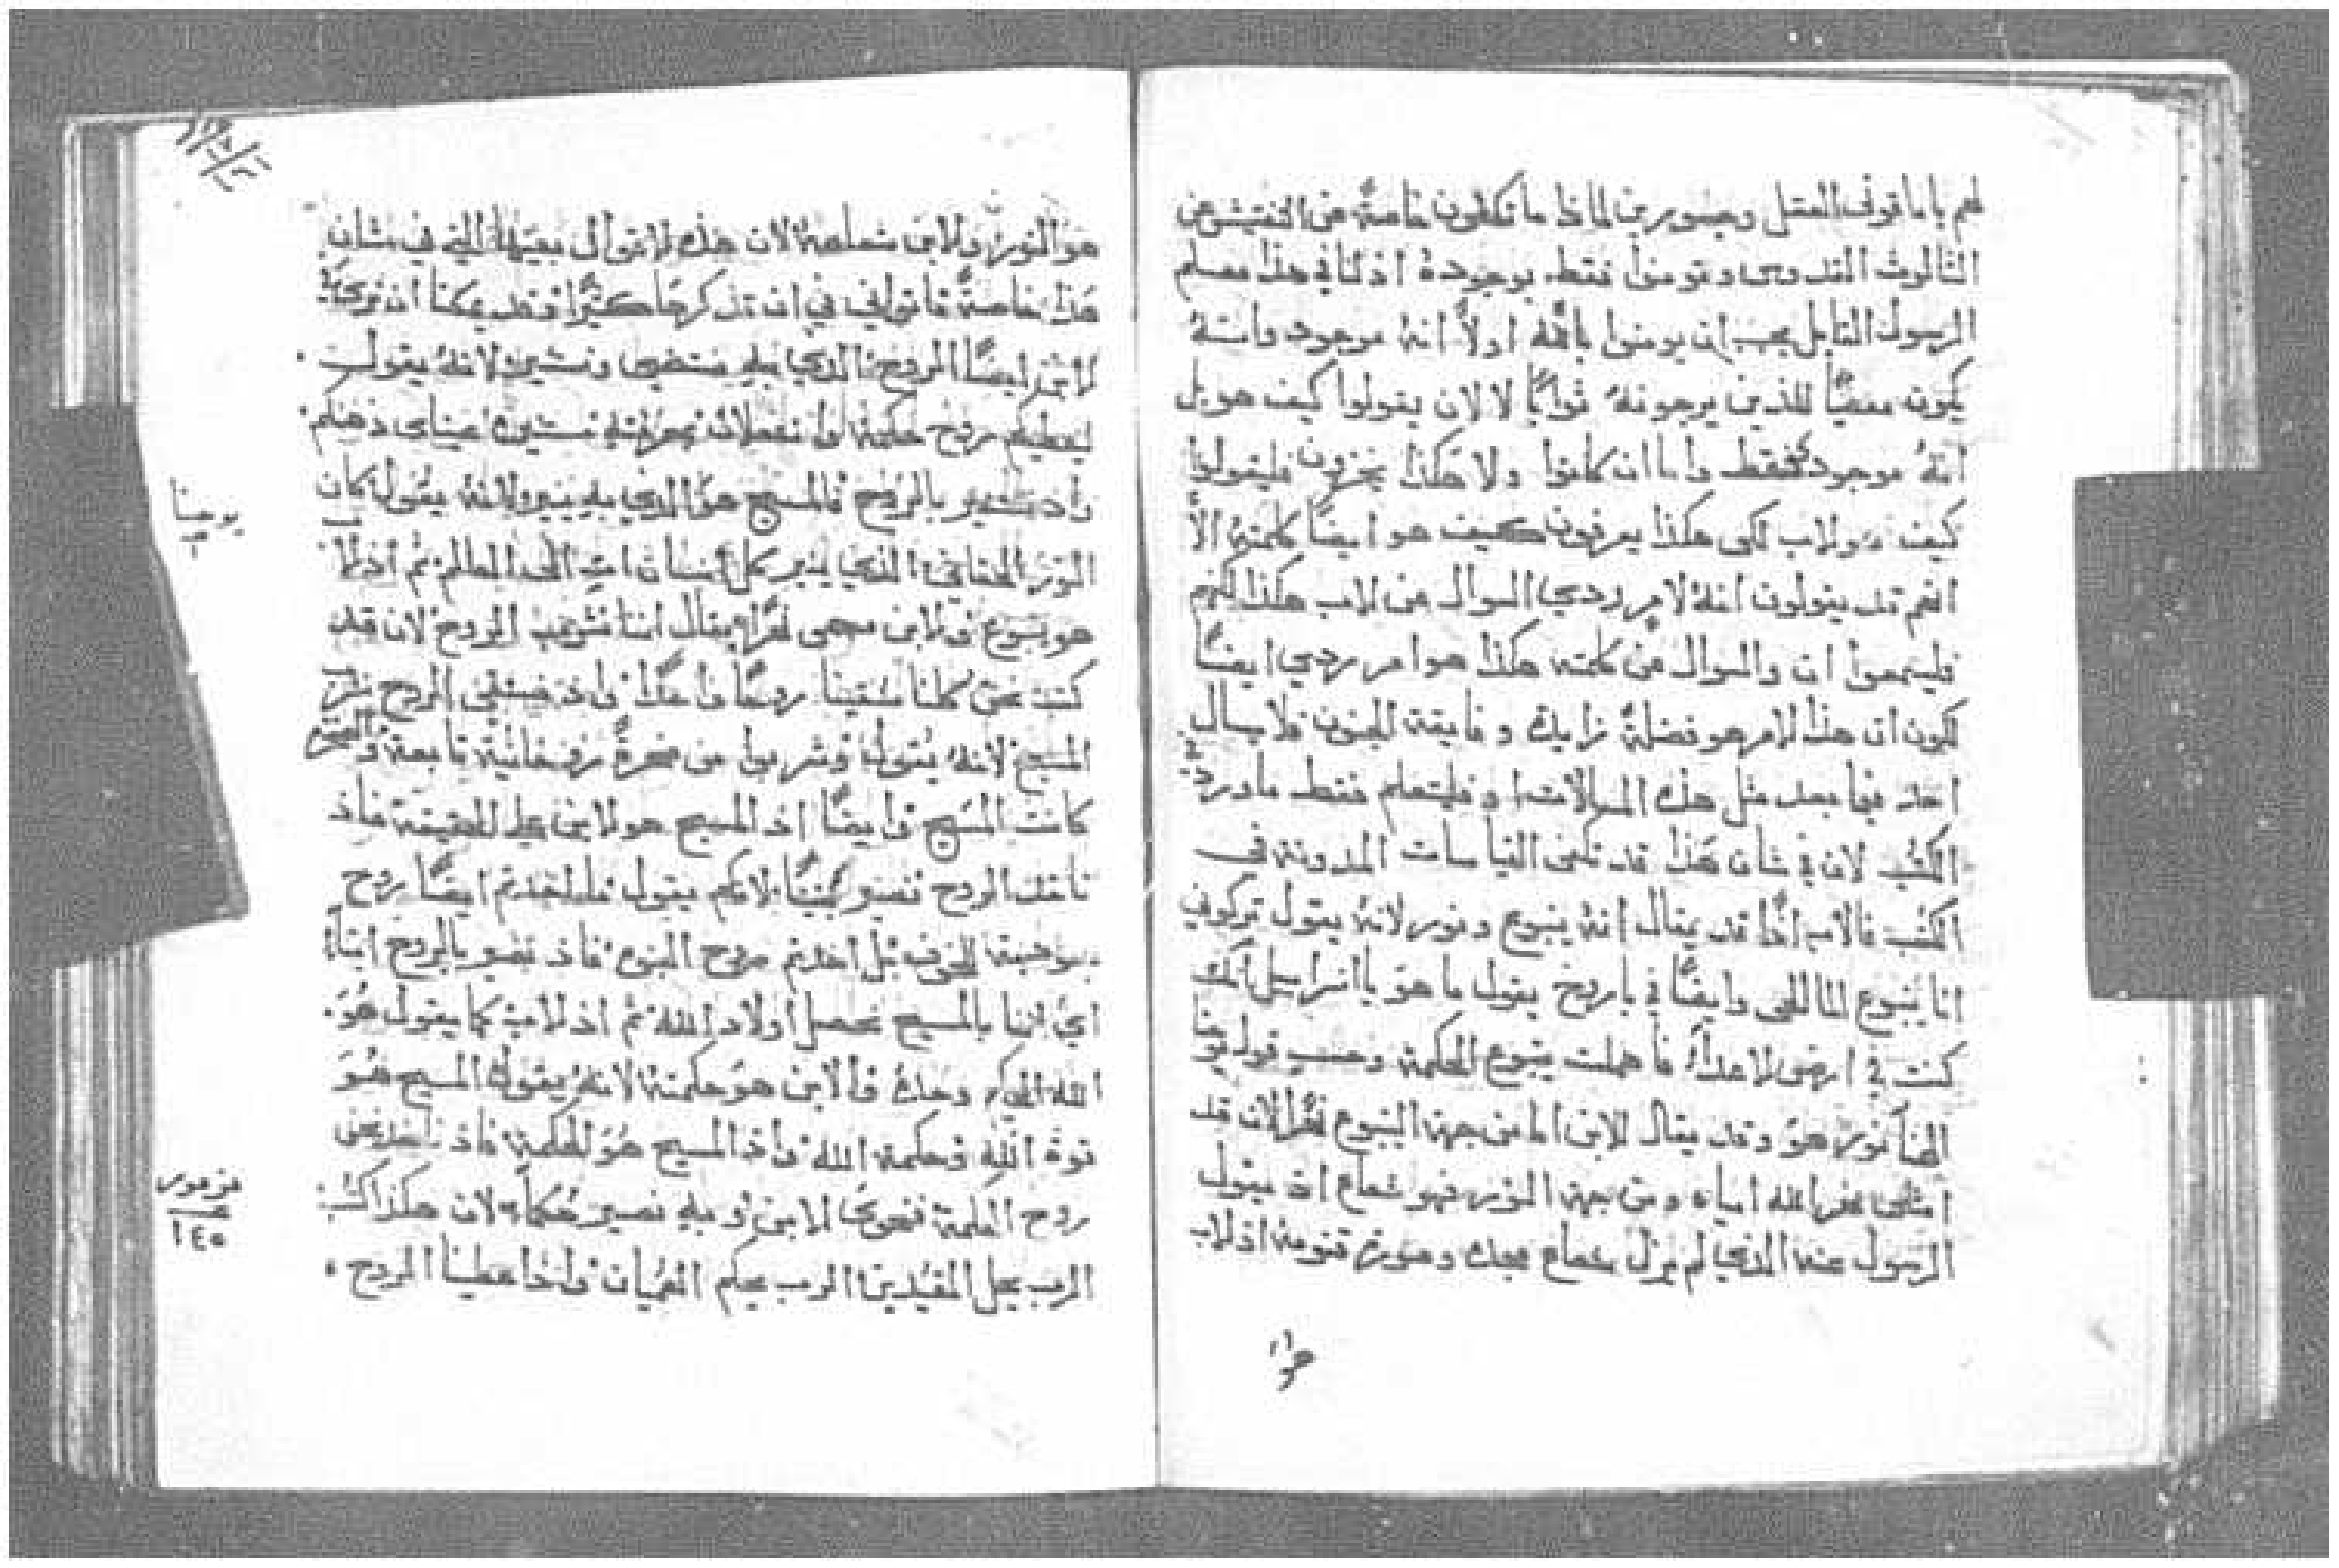 لهم يا ماقوفي العقل وجسورين لماذا ما تكفون خاصةً عن التفتيش عن
الثالوث القدوس وتومنوا فقط بوجوده اذ لنا في هذا معلم
الرسول القايل يجب ان يومنوا بالله اولاً انه موجود وانه
يكون معطيًا للذين يرجونه ثوابًا لا لان يقولوا كيف هو بل
انه موجود فقط واما ان كانوا ولا هكذا يخزون فليقولوا
كيف هو الاب لكي هكذا يعرفون كيف هو ايضًا كلمته الا
انهم قد يقولون انه لامر ردي السوال عن الاب هكذا لكنهم
فليسمعوا ان والسوال عن كلمته هكذا هو امر ردي ايضًا
لكون ان هذا الامر هو فضلة زايدة وفايقة الجنون فلا يسال
احد فيما بعد مثل هذه السوالات وفليتعلم فقط ما ورد في
الكتب لان في شان هذا قد تكفي القياسات المدونة في
الكتب فالاب اذًا قد يقال انه ينبوع ونور لانه يقول تركوني
انا ينبوع الما الحي وايضًا في باروخ يقول ما هو يا اسراييل انك
كنت في ارض الاعداء فاهملت ينبوع الحكمة وحسب قول يوحنا
الهنا نور هو وقد يقال للابن اما من جهة الينبوع نهرًا لان قد
امتلى نهر الله امياه ومن جهة النور فهو شعاع اذ يقول
الرسول عنه الذي لم يزل شعاع مجده وصورة قنومه اذ الاب
هو
هو النور والابن شعاعه لان هذه الاقوال بعينها التي في شان
هذا خاصةً ما نواني في ان نذكرها كثيرًا وقد يمكنا ان نرى
الابن ايضًا الروح الذي به نستضي ونستنير لانه يقول
ليعطيكم روح حكمة واستعلان بمعرفته مستنيرة عينا ذهنكم
واذ نستنير بالروح فالمسيح هو الذي به ينير لانه يقول كان
النور الحقاني الذي ينير كل انسان اتٍ الى العالم ثم اذ الاب
هو ينبوع والابن سمي نهرًا يقال اننا نشرب الروح لان قد
كتب نحن كلنا سقينا روحًا واحدًا واذ نستقي الروح نشرب
المسيح لانه يقول وشربوا من صخرةٍ روحانية تابعة والصخرة
كانت المسيح وايضًا اذ المسيح هو الابن على الحقيقة فاذ
ناخذ الروح نصير بنينًا لانكم يقول ما اخذتم ايضًا روح
عبودية للخوف بل اخذتم روح البنوة فاذ نصير بالروح ابناء
اي اننا بالمسيح نحصل اولاد الله ثم اذ الاب كما يقول هو
الله الحكيم وحده والابن هو حكمته لانه يقول المسيح هو
قوة الله وحكمة الله واذ المسيح هو الحكمة فاذ ناخذ نحن
روح الحكمة نحوي الابن وبه نصير حُكماء لان هكذا كتب
الرب يحل المقيدين الرب يحكم العميان واذا عطينا الروح
يوحنا
١
مزمور
١٤٥